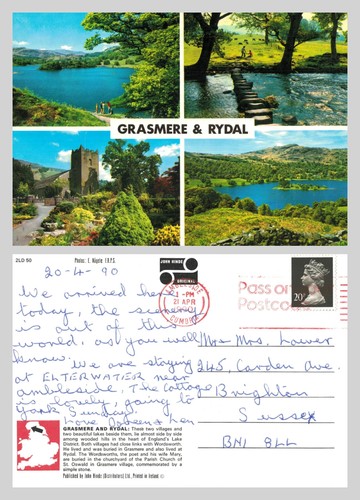 GRASMERE & RYDAL
2LD 50
Photos: E. Nägele F.R.P.S.
JOHN HINDE
ORIGINAL
20-4-90
AMBLESIDE
-PM
21 APR
CUMBRIA
Pass on
Postcode
20
We arrived here
today, the scenery
is out of this
world, as you well
know.
We are staying
at ELTERWATER near
ambleside, The cottage
is lovely, going to
York Sunday.
Love Doreen & Len
Mr & Mrs. Lawer
245, Carden Ave.
Brighton
Sussex
BN1 8LL
GRASMERE AND RYDAL: These two villages and
two beautiful lakes beside them, lie almost side by side
among wooded hills in the heart of England's Lake
District. Both villages had close links with Wordsworth.
He lived and was buried in Grasmere and also lived at
Rydal. The Wordsworths, the poet and his wife Mary,
are buried in the churchyard of the Parish Church of
St. Oswald in Grasmere village, commemorated by a
simple stone.
Published by John Hinde (Distributors) Ltd. Printed in Ireland